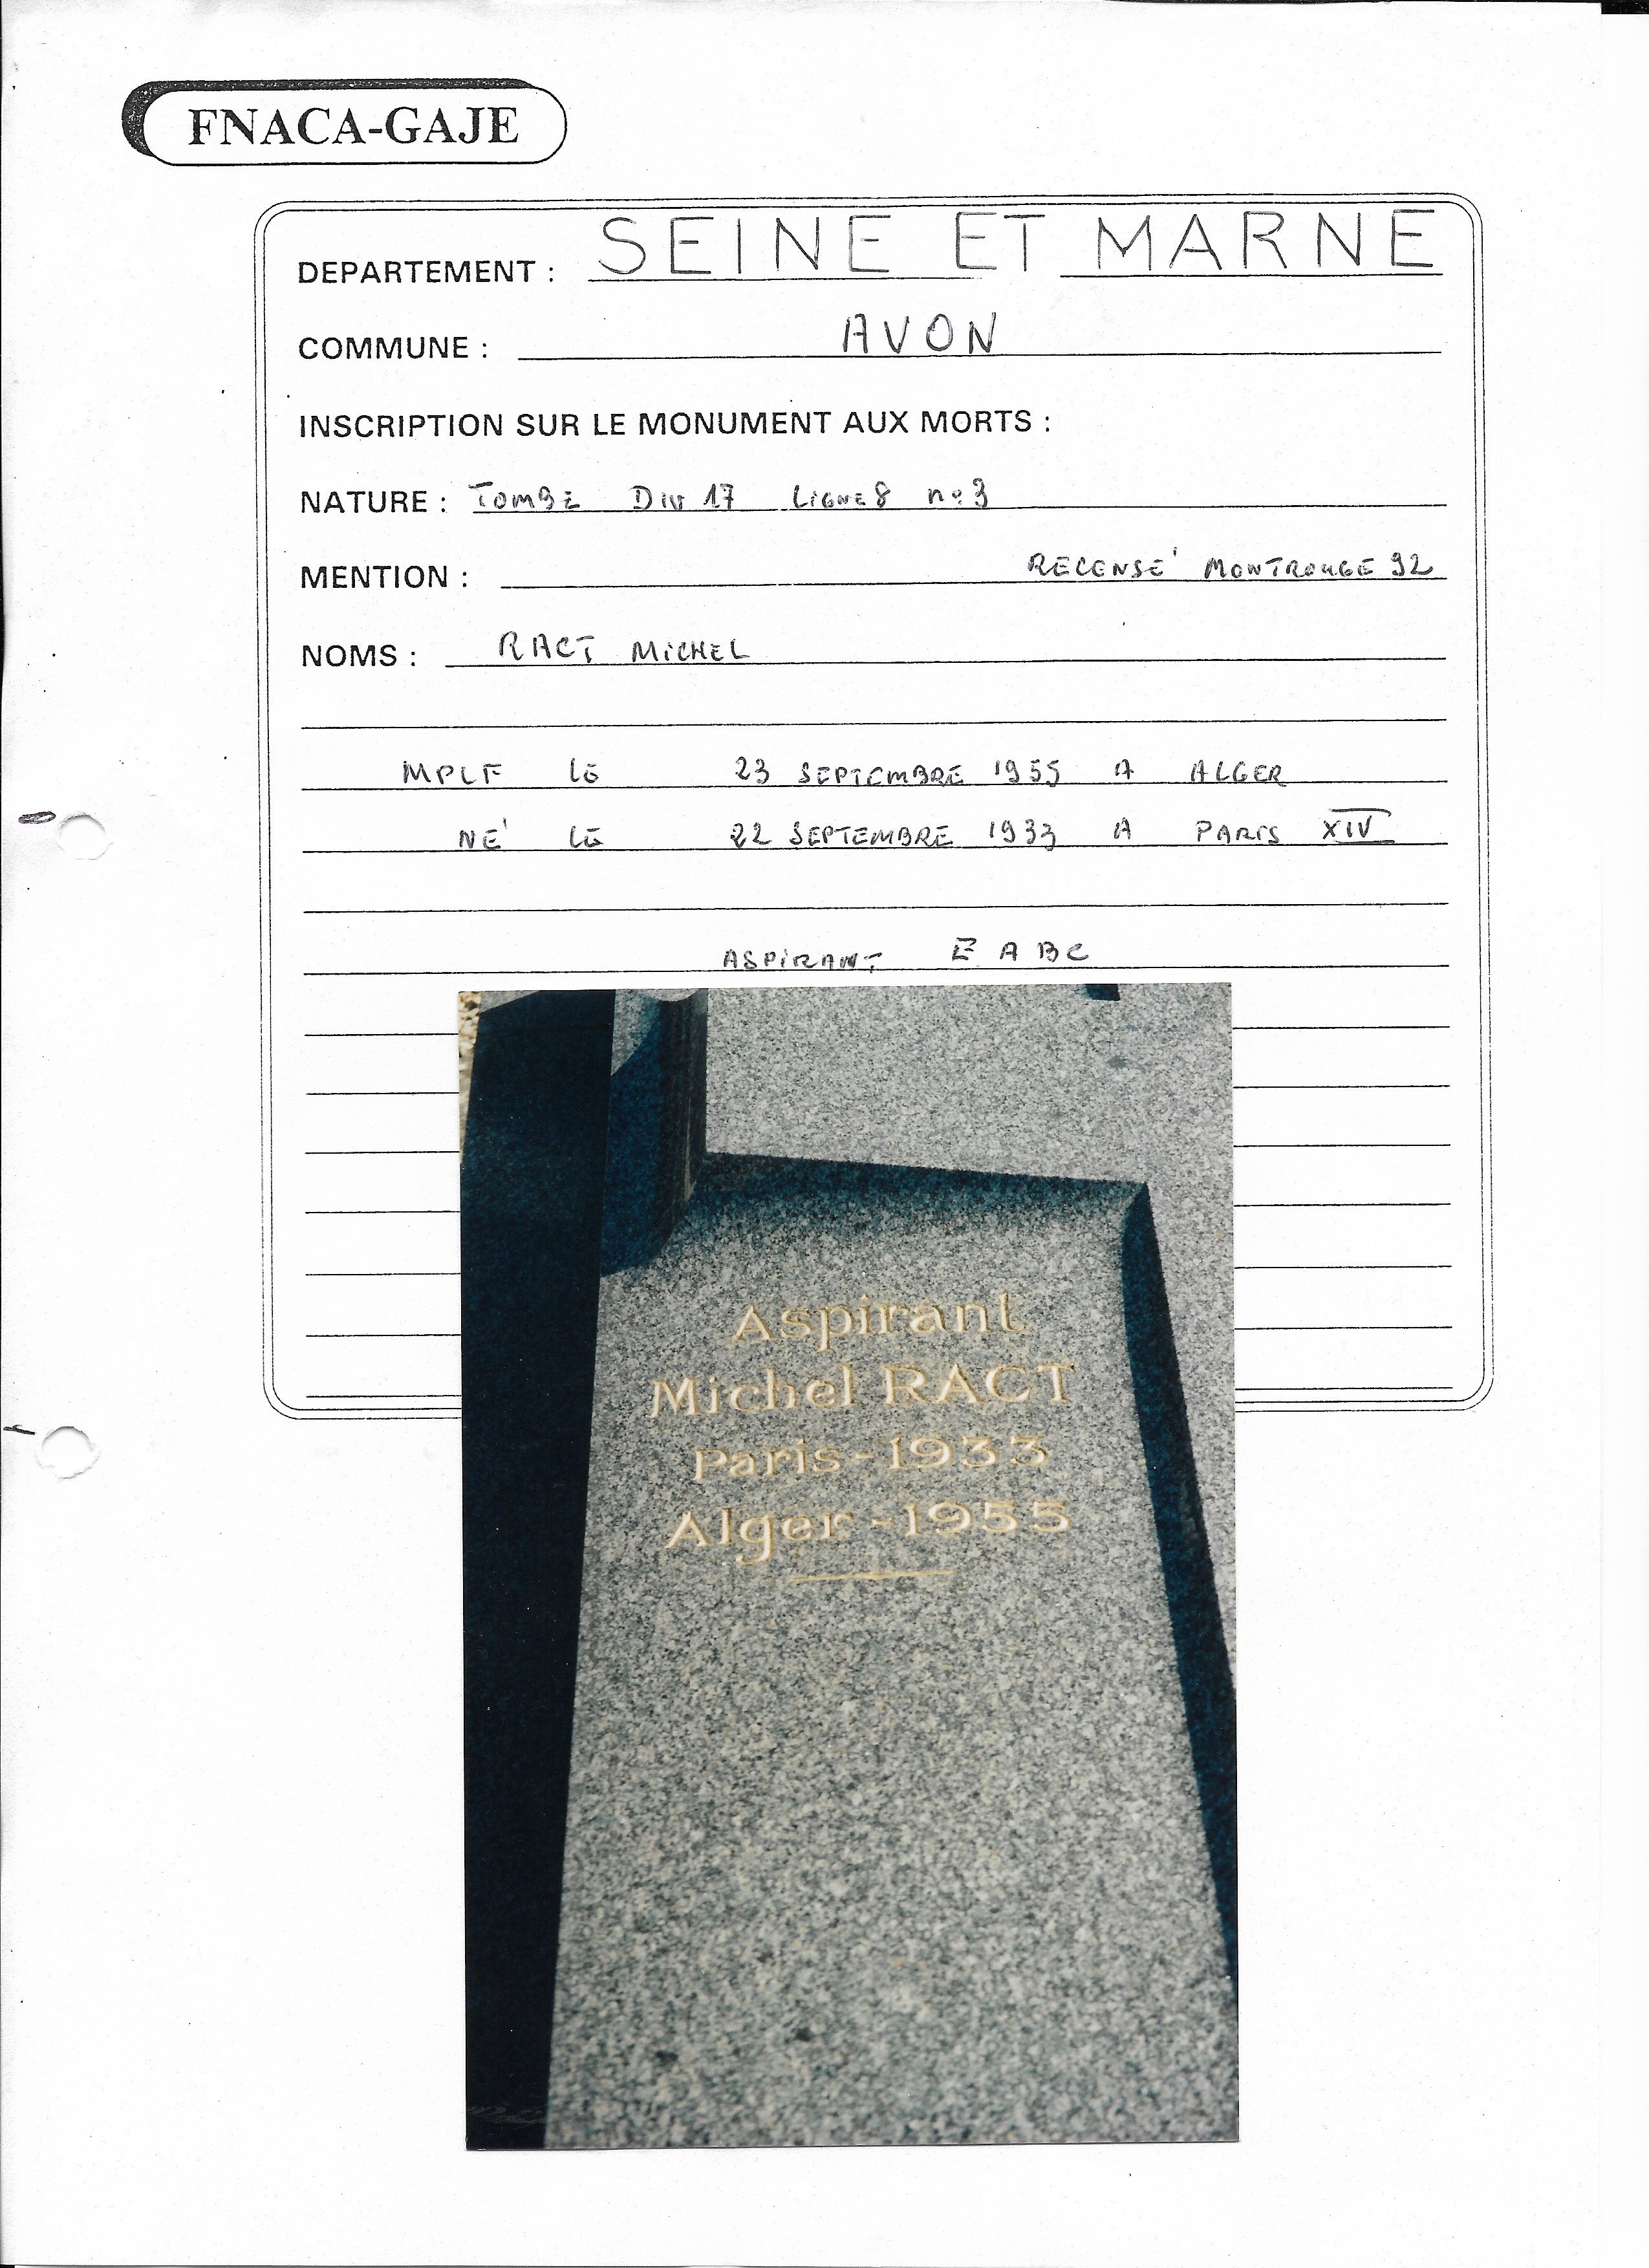 FNACA-GAJE
DEPARTEMENT : SEINE ET MARNE
COMMUNE : AVON
INSCRIPTION SUR LE MONUMENT AUX MORTS :
NATURE : TOMBE DIV 17 LIGNE 8 no 3
MENTION : RECENSÉ MONTROUGE 92
NOMS : RACT MICHEL
MPLF LE 23 SEPTEMBRE 1955 A ALGER
NÉ LE 22 SEPTEMBRE 1933 A PARIS XIV
ASPIRANT E A B C
Aspirant
Michel RACT
Paris - 1933
Alger - 1955